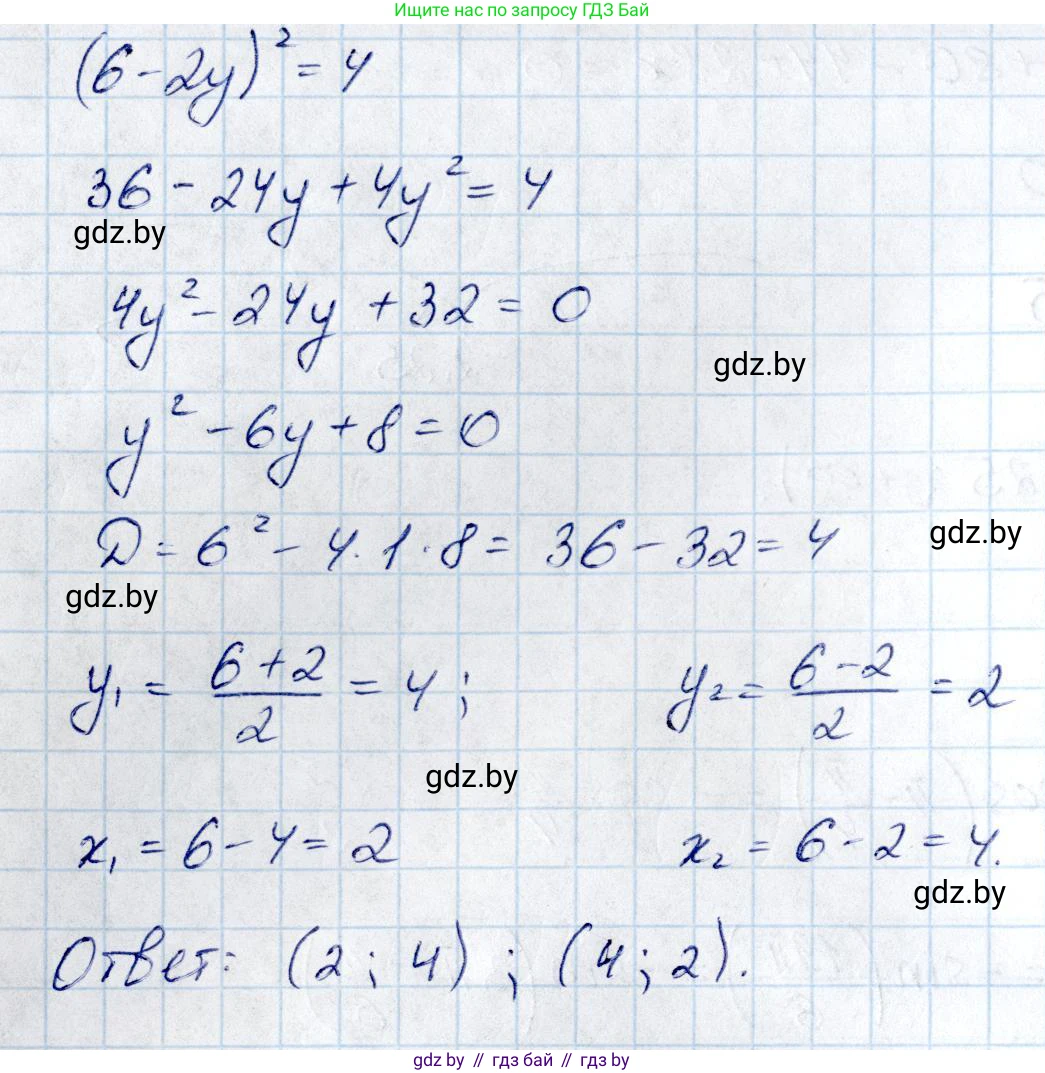 Ищите нас по запросу ГДЗ Бай
(6-2y)² = 4
36 - 24y + 4y² = 4
gdz.by
4y² - 24y + 32 = 0
gdz.by
y² - 6y + 8 = 0
D = 6² - 4·1·8 = 36 - 32 = 4
gdz.by
gdz.by
y₁ = (6+2)/2 = 4; y₂ = (6-2)/2 = 2
gdz.by
x₁ = 6 - 4 = 2 x₂ = 6 - 2 = 4.
gdz.by
Ответ: (2; 4); (4; 2).
gdz by // гдз бай // gdz by